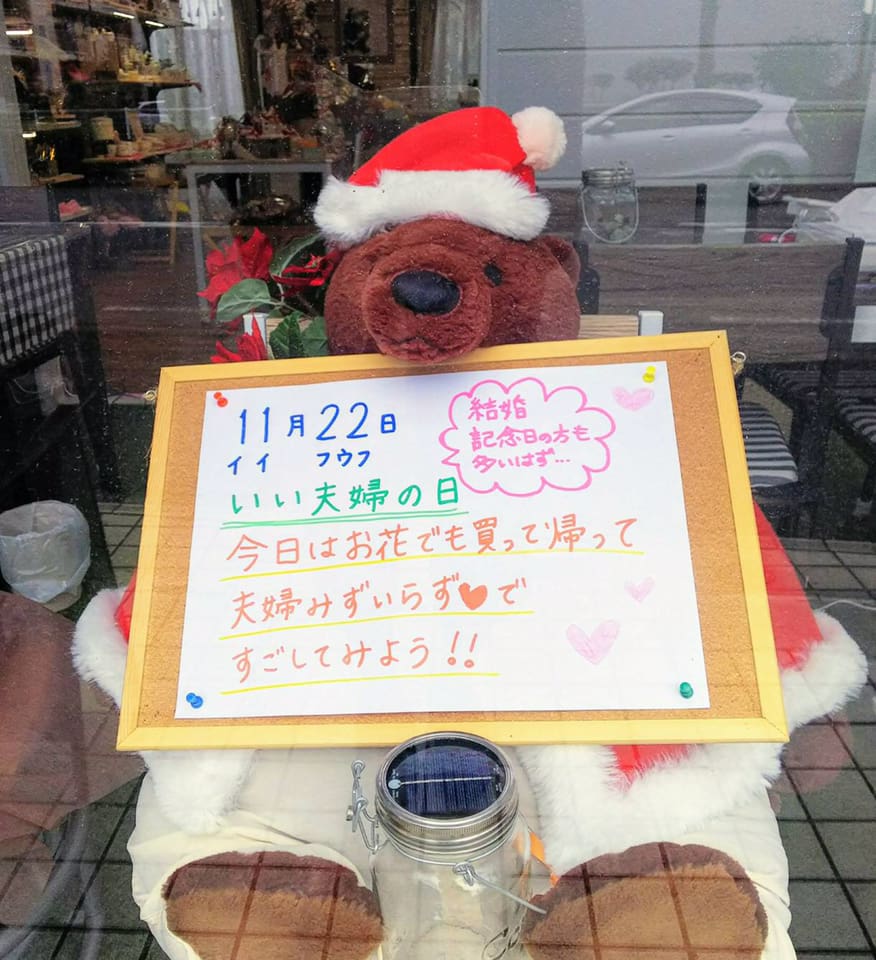 11月22日
イイ フウフ
いい夫婦の日
結婚
記念日の方も
多いはず…
今日はお花でも買って帰って
夫婦みずいらず♥で
すごしてみよう!!